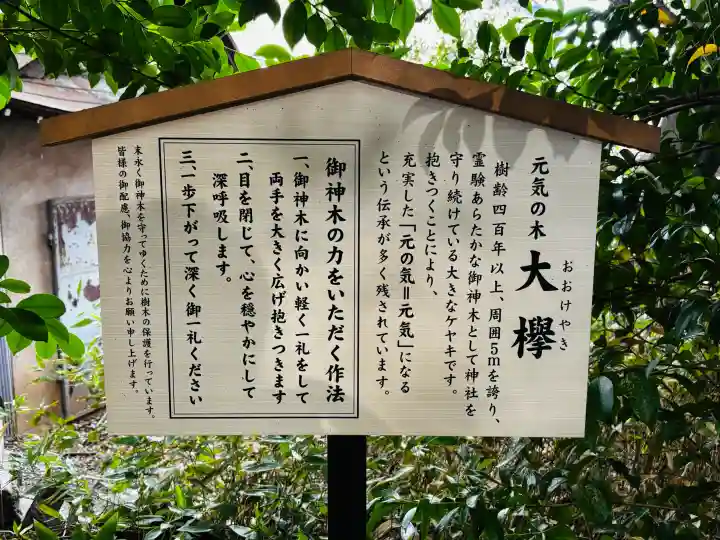 元気の木
大欅
おおけやき
樹齢四百年以上、周囲5mを誇り、
霊験あらたかな御神木として神社を
守り続けている大きなケヤキです。
抱きつくことにより、
充実した「元の気=元気」になる
という伝承が多く残されています。
御神木の力をいただく作法
一、御神木に向かい軽く一礼をして
両手を大きく広げ抱きつきます
二、目を閉じて、心を穏やかにして
深呼吸します。
三、一歩下がって深く御一礼ください
末永く御神木を守ってゆくために樹木の保護を行っています。
皆様の御配慮、御協力を心よりお願い申し上げます。